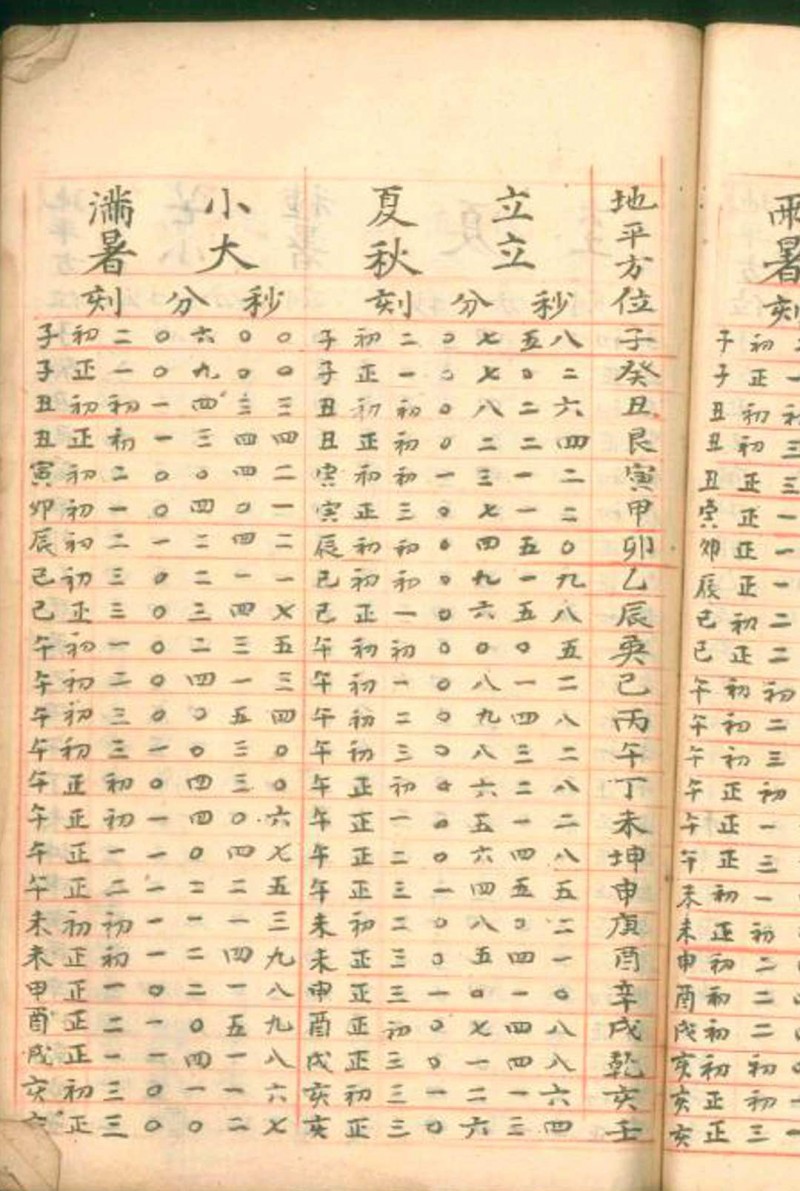 滿小夏立地
暑大秋立平
刻分秒刻分秒方位
子初二〇六〇〇子初二〇七五八子
子正一〇九〇〇子正一〇七〇二癸
丑初初一四三三丑初初〇八二六丑
丑正初一三四四丑正初〇二二四艮
寅初二〇〇四二寅初初一三一二寅
卯初一〇四〇一寅正三〇七一二甲
辰初二一二四二辰初初〇四五〇卯
己初三〇二一一己初初〇九一九乙
己正三〇三四七己正一〇六五八辰
午初一〇二三五午初初〇〇〇五巽
午初二〇四一三午初一〇八一二己
午初三〇〇五四午初二〇九四八丙
午初三一〇三〇午初三〇八三二午
午正初〇四三〇午正初〇六二八丁
午正初一四〇六午正一〇五一二未
午正一一〇四七午正二〇六四八坤
午正二一二二五午正三一四五五申
未初初一一一三未初二〇八〇二庚
未正初一二四九未正三〇五四一酉
申正一〇二一八申正三一〇一〇辛
酉正二一〇五九酉正初〇七四八戌
戌正一一四一八戌正三〇一四八乾
亥初三〇一一六亥初三一二一六亥
正三〇〇二七亥正三〇六三四壬
雨
暑
刻
子初
子正一
丑初初
丑初三
丑正三
寅正一
卯正一
辰正一
己初二
己正二
午初初
午初二
午初三
午正初
午正一
午正三
未初一
未正初
申初二
酉初二
戌初二
亥初初
亥正初
亥正三